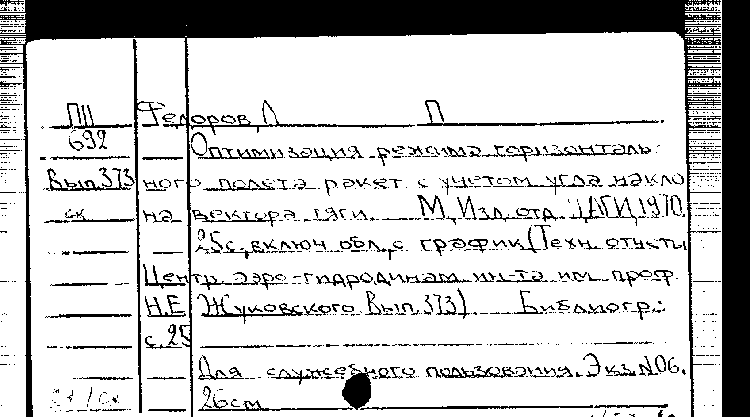 ПШ Федоров, Л П
692 Оптимизация режима горизонталь-
Вып. 373 ного полета ракет с учетом угла накло
ск на вектора тяги. М, Изд. отд. ЦАГИ, 1970.
25с., включ. обл., с график. (Техн. отчеты
Центр. аэро-гидродинам. ин-та им. проф.
Н.Е. Жуковского. Вып. 373) Библиогр.:
с. 25
Для служебного пользования. Экз. N06.
26см